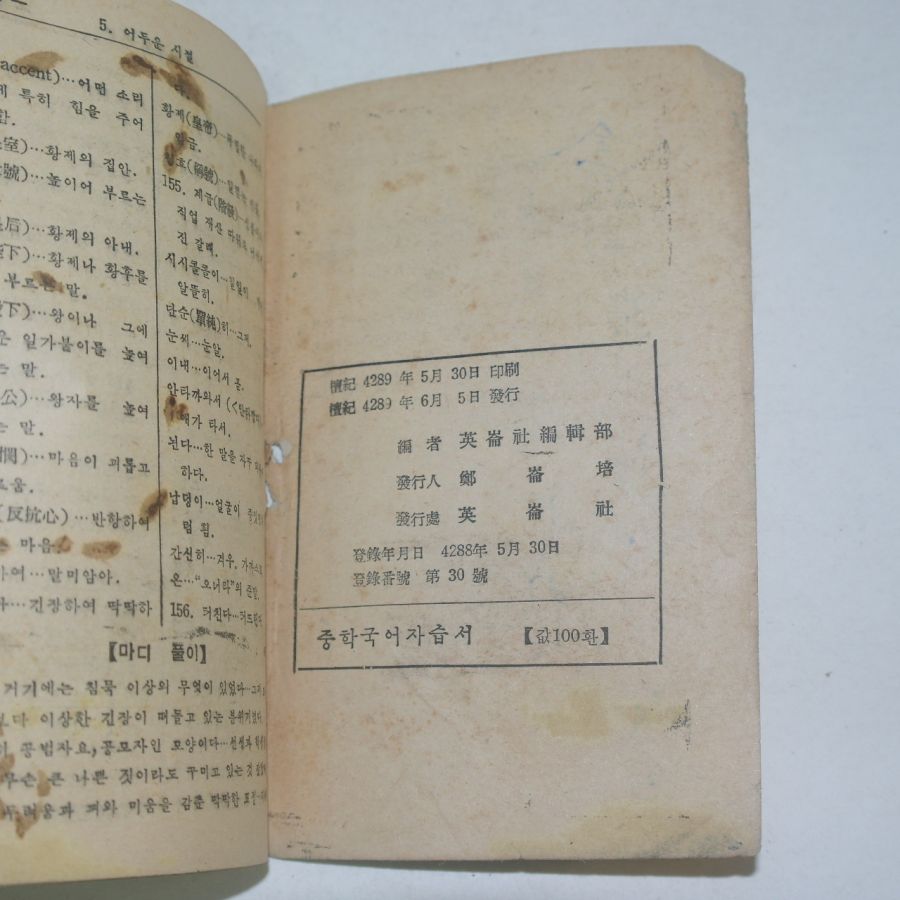 5. 어두운 시절
accent)…어떤 소리
특히 힘을 주어
室)…황제의 집안.
號)…높이어 부르는
后)…황제의 아내.
下)…황제나 황후를
부르는 말.
下)…왕이나 그에
일가붙이를 높여
는 말.
公)…왕자를 높여
는 말.
…마음이 괴롭고
로움.
(反抗心)…반항하여
는 마음.
하여…말미암아.
…긴장하여 딱딱하
다.
황제(皇帝)
임금.
칭호(稱號)
155. 계급(階級)
직업 재산 따위로
진 갈래.
시시콜콜이
알뜰히.
단순(單純)히…그저.
눈씨…눈알.
이내…이어서 곧.
안타까와서
애가 타서.
뇐다…한 말을 자주
하다.
납덩이…얼굴이
럼 됨.
간신히…겨우.
온…"오너라"의 준말.
156. 더친다
【마디 풀이】
거기에는 침묵 이상의 무엇이 있었다
보다 이상한 긴장이 떠돌고 있는 분위기였다.
공범자요, 공모자인 모양이다
무슨 큰 나쁜 짓이라도 꾸미고 있는 것
두려움과 미움을 감춘 딱딱한 표정
檀紀 4289 年 5月 30日 印刷
檀紀 4289 年 6月 5日 發行
編者 英崙社編輯部
發行人 鄭崙培
發行處 英崙社
登錄年月日 4288年 5月 30日
登錄番號 第 30 號
중학국어자습서 【값100환】